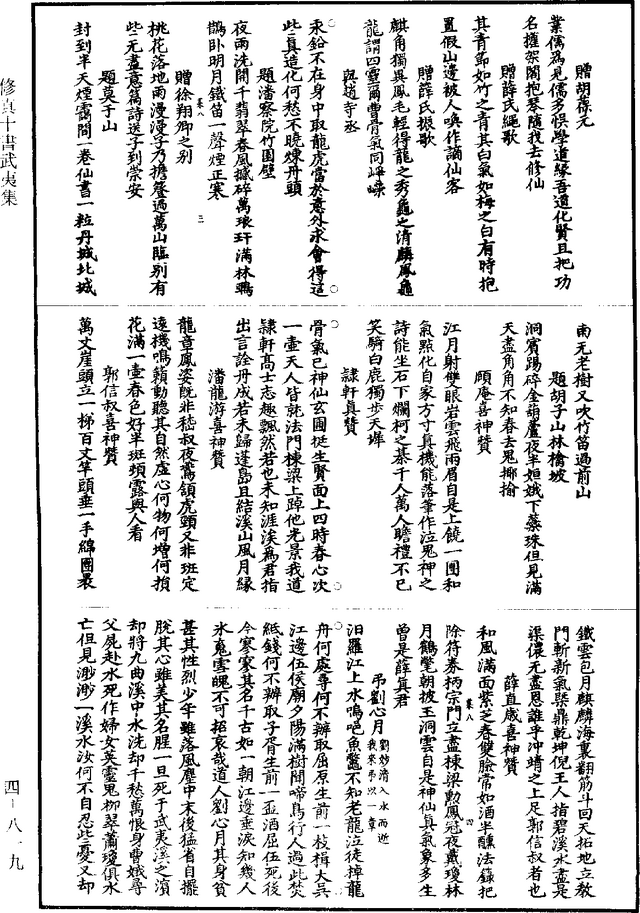 贈胡葆元
業儒為見儒多悞學道緣吾道化賢且把功
名權架閣抱琴隨我去修仙
贈薛氏繩歌
其青節如竹之青其白氣如梅之白有時抱
置假山邊被人喚作謫仙客
贈薛氏振歌
麒角獨異鳳毛輕得龍之秀龜之清麟鳳龜
龍謂四靈爾曹骨氣同崢嶸
與趙寺丞
汞鉛不在身中取龍虎當於意外求會得這
些真造化何愁不曉煉丹頭
題潘察院竹園壁
夜雨洗開千翡翠春風撼碎萬琅玕滿林鴉
鵲臥明月鐵笛一聲煙正寒
贈徐翔卿之别
桃花落地雨漫漫子乃擔簦過萬山臨别有
些些无盡意篇詩送子到崇安
題莫于山
封到半天煙靄間一卷仙書一粒丹城北城
南无老樹又吹竹笛過前山
題胡子山林檎坡
洞賓踢碎金葫蘆夜半姮娥下蘂珠但見滿
天盡角角不知春去鬼揶揄
頤庵喜神贊
江月射雙眼岩雲飛兩眉自是上饒一團和
氣點化自家方寸真機能落筆作泣鬼神之
詩能坐石下爛柯之棊千人萬人瞻禮不已
笑騎白鹿獨步天墀
隷軒真贊
骨氣已神仙玄圃挺生賢面上四時春心次
一壷天人皆就法門棟梁上踔他光景我道
隷軒高士志趣飄然若也未知涯涘為君指
出言詮丹成若未歸蓬島且結溪山風月緣
潘龍游喜神贊
龍章鳳姿既非嵇叔夜鷰頷虎頭又非班定
遠機鳴籟動聽其自然虛心何物何增何損
花滿一壷春色好半斑頭露與人看
郭信叔喜神贊
萬丈崖頭立一梯百丈竿頭垂一手綿團裹
鐵雲包月麒麟海裏翻筋斗回天拓地立教
門斬新氣槩鼎乾坤倪王人指碧溪水盡是
渠儂无盡恩誰乎冲靖之上足郭信叔者也
薛直歲喜神贊
和風滿面紫芝春雙臉常如酒半醺法籙把
除符券柄宗門立盡棟梁勳鳳冠夜戴瓊林
月鶴氅朝披玉洞雲自是神仙真氣象多生
曾是薛真君
弔劉心月 劉妙清入水而逝我來弔以一章
汨羅江上水嗚咽魚鱉不知老龍泣徒掉龍
舟何處尋何不辦取屈原生前一枝楫大吳
江邊伍侯廟夕陽滿樹間啼鳥行人過此焚
紙錢何不辦取子胥生前一盃酒屈伍死後
今寥寥其名千古如一朝江邊垂淚知幾人
氷魂雪魄不可招哀哉道人劉心月其身貧
甚其性烈少年雖落風塵中末後猛省自擺
脫其心雖美其名腥一旦死于武夷溪之濵
却將九曲溪中水洗却千愁萬恨身曹娥尋
父屍赴水死作婦女英靈鬼柳翠蕭瓊俱水
亡但見渺渺一溪水汝何不自忍些憂又却
修真十書武夷集
集八
三
集八
四
四-八一九